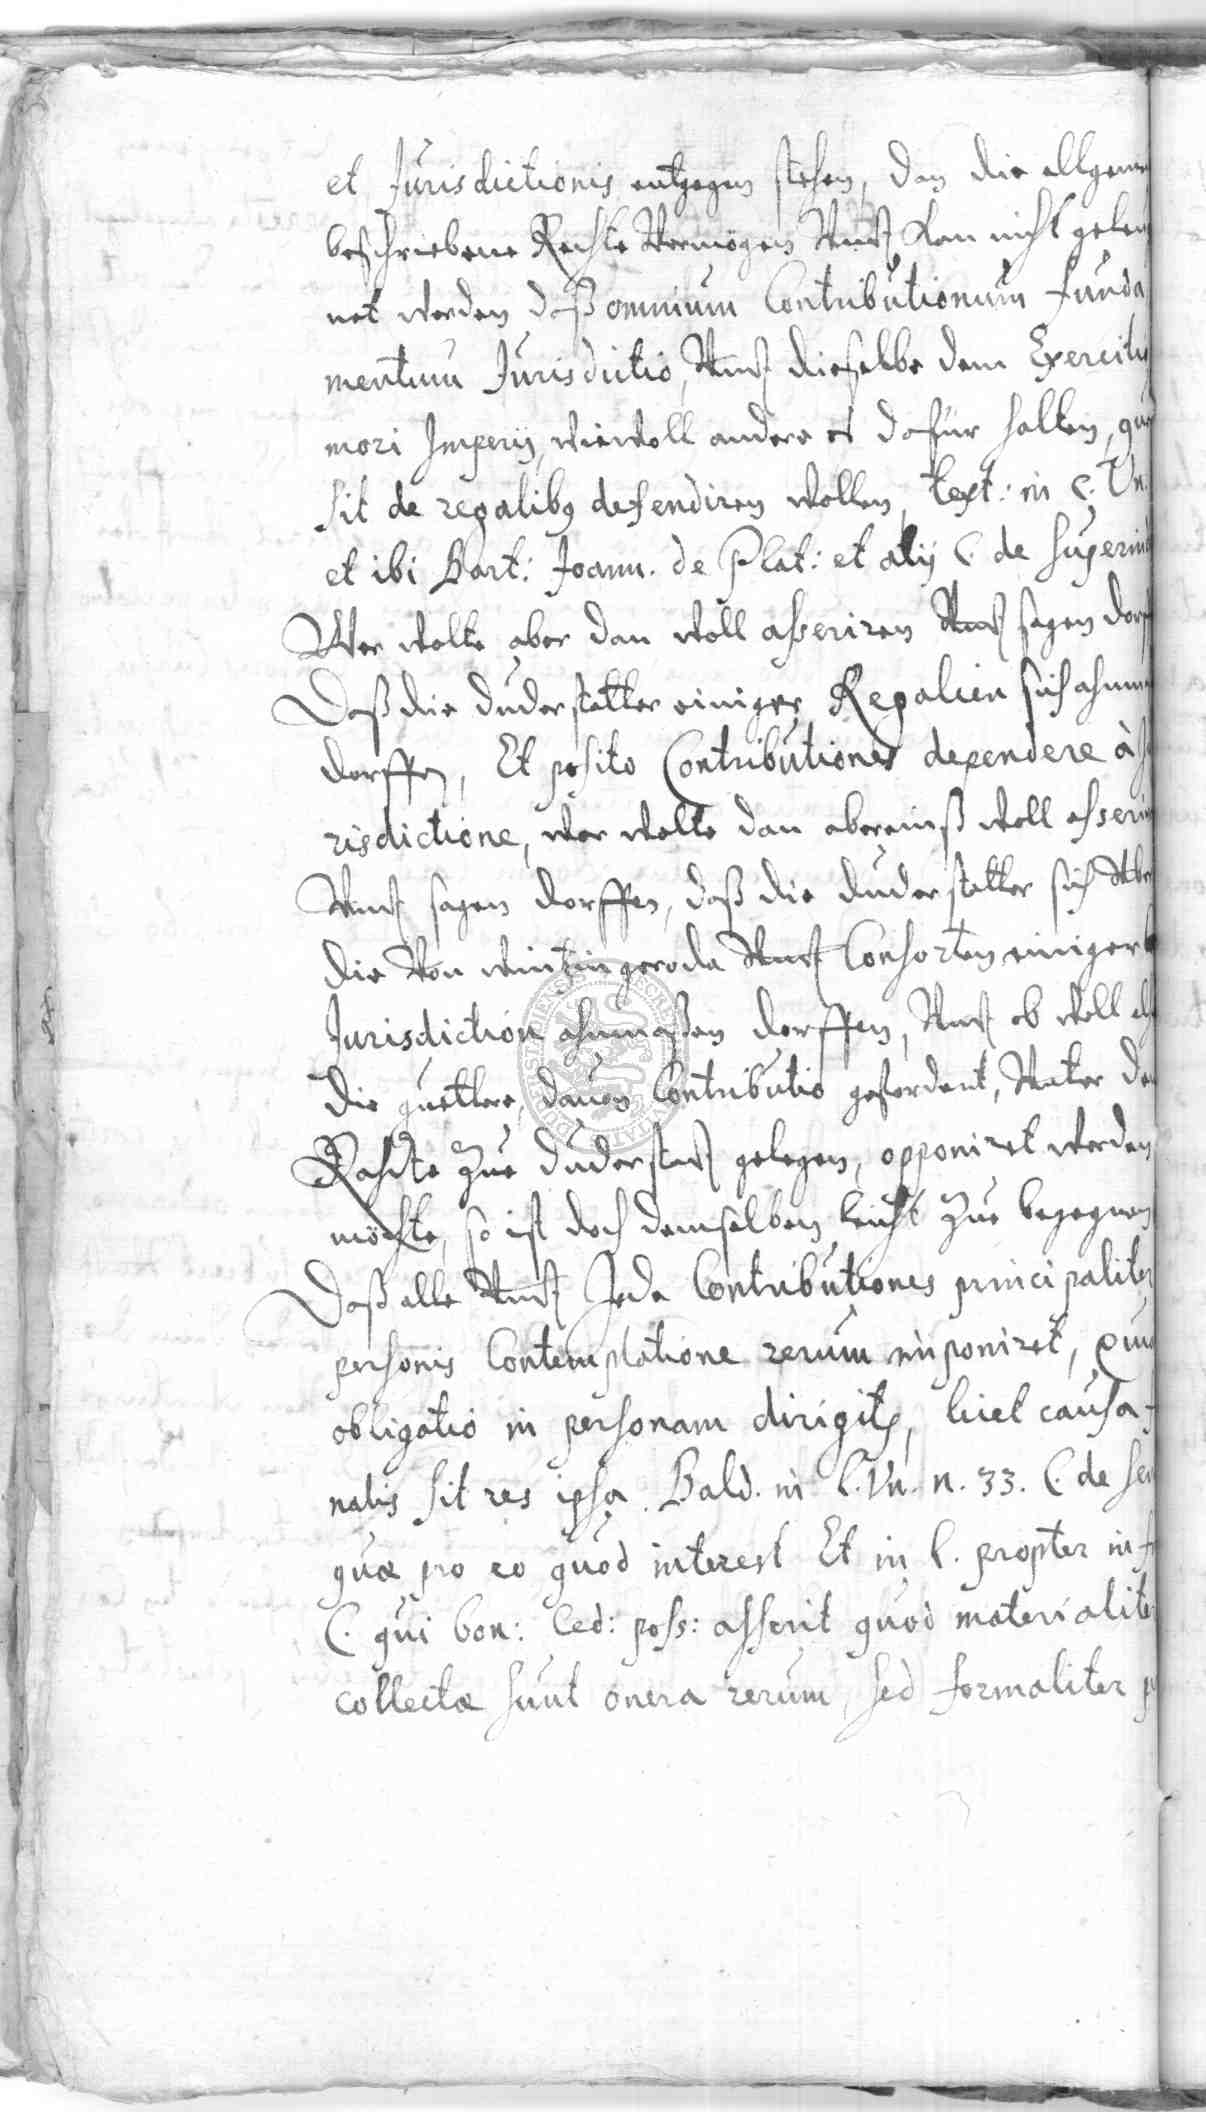 et Jurisdictionis entgegen stehen, dan die allgeme
beschriebene Rechte Vermögen Vndt kan nicht geleug
net werden daß omnium Contributionum funda
mentum Jurisdictio, Vndt dieselbe dem Exercitu
meri Imperij, wiewoll andere es dafür halten, qu
sit de regalibus defendiren wollen, text: in C. Vn.
et ibi Bart: Joann. de Plat: et alij C. de superind
Wer wolte aber dan woll asseriren Vndt sagen dorf
Daß die Duderstatter einiger Regalien sich ahnm
dorffen, Et posito Contributiones dependere à Ju
risdictione, wer wolte dan abereinß woll asserir
Vndt sagen dorffen, daß die Duderstatter sich Vber
die Von Wintzingeroda Vndt Consorten einiger
Jurisdiction ahnmaßen dorffen, Vndt ob woll als
die guettere, dauon Contributio gefordert, Vnter dem
Rahdte zue Duderstadt gelegen, opponiret werden
möchte, so ist doch demselben leicht zue begegnen
Daß alle Vndt Jede Contributiones principaliter
personis Contemplatione rerum imponiret, Quia
obligatio in personam dirigitur, licet causa
nalis sit res ipsa. Bald. in l. Vn. n. 33. C. de sen
quæ pro eo quod interest Et in l. propter in f
C. qui bon: Ced: poss: asserit quod materialite
collectæ sunt onera rerum, sed formaliter p